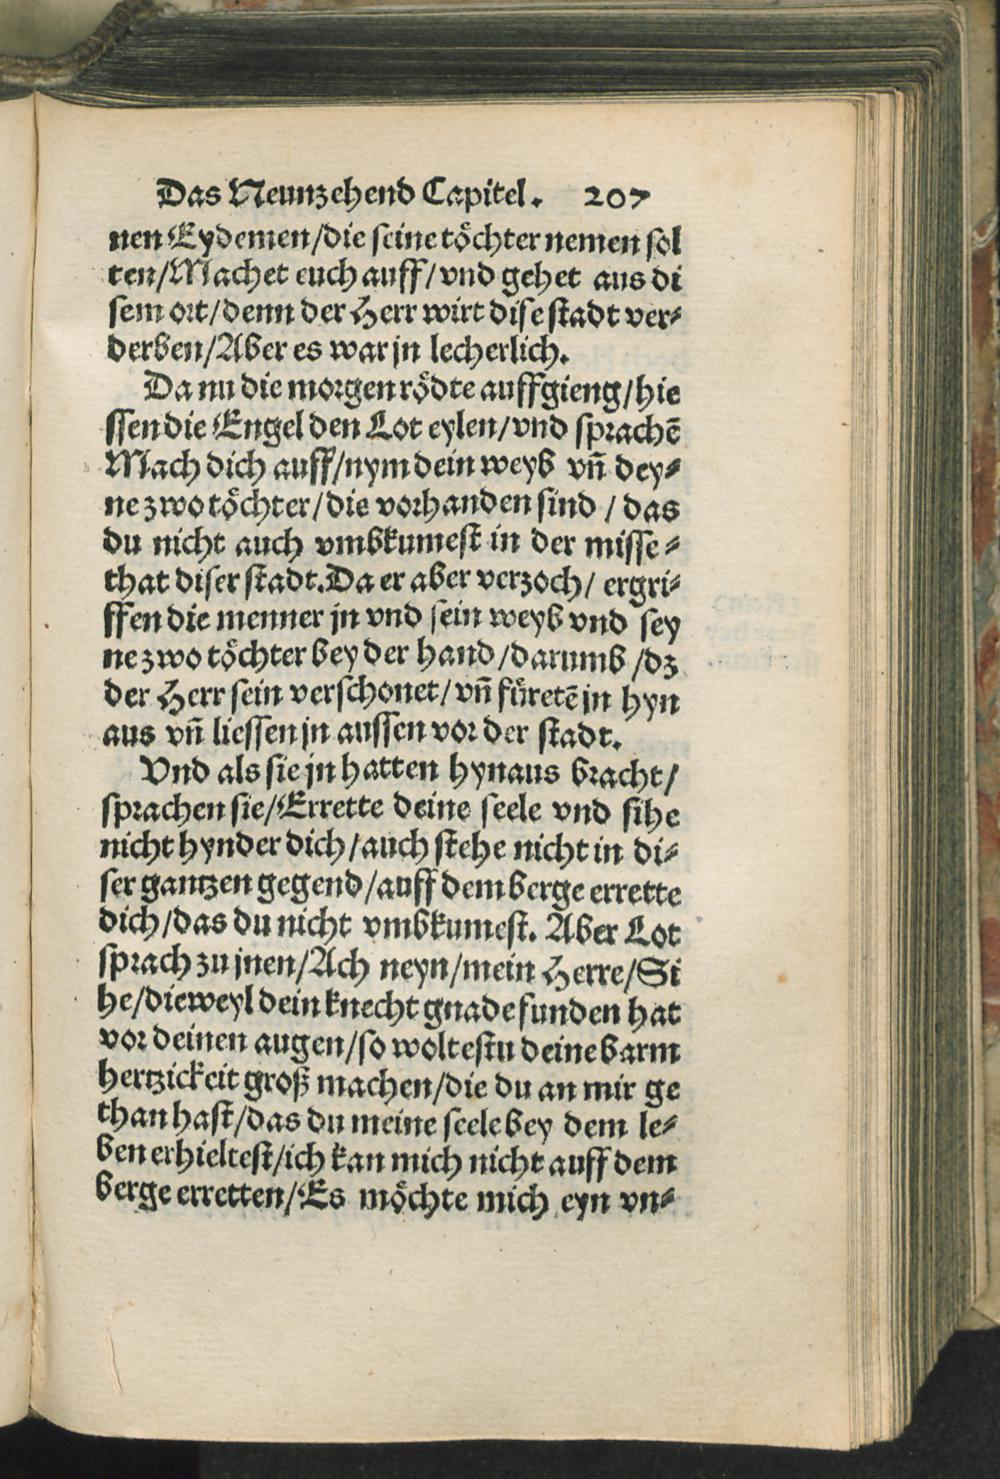 Das Neunzehend Capitel. 207
nen Eydemen/die seine töchter nemen sol
ten/Machet euch auff/vnd gehet aus di
sem ort/denn der Herr wirt dise stadt ver⸗
derben/Aber es war jn lecherlich.
Da nu die morgenrödte auffgieng/hie
ssen die Engel den Lot eylen/vnd sprachē
Mach dich auff/nym dein weyb vñ dey⸗
ne zwo töchter/die vorhanden sind / das
du nicht auch vmbkumest in der misse⸗
that diser stadt. Da er aber verzoch/ ergri⸗
ffen die menner jn vnd sein weyb vnd sey
ne zwo töchter bey der hand/darumb /dz
der Herr sein verschonet/vñ füretē jn hyn
aus vñ liessen jn aussen vor der stadt.
Vnd als sie jn hatten hynaus bracht/
sprachen sie/Errette deine seele vnd sihe
nicht hynder dich/auch stehe nicht in di⸗
ser gantzen gegend/auff dem berge errette
dich/das du nicht vmbkumest. Aber Lot
sprach zu jnen/Ach neyn/mein Herre/Si
he/dieweyl dein knecht gnade funden hat
vor deinen augen/so woltestu deine barm
hertzickeit groß machen/die du an mir ge
than hast/das du meine seele bey dem le⸗
ben erhieltest/ich kan mich nicht auff dem
berge erretten/Es möchte mich eyn vn⸗